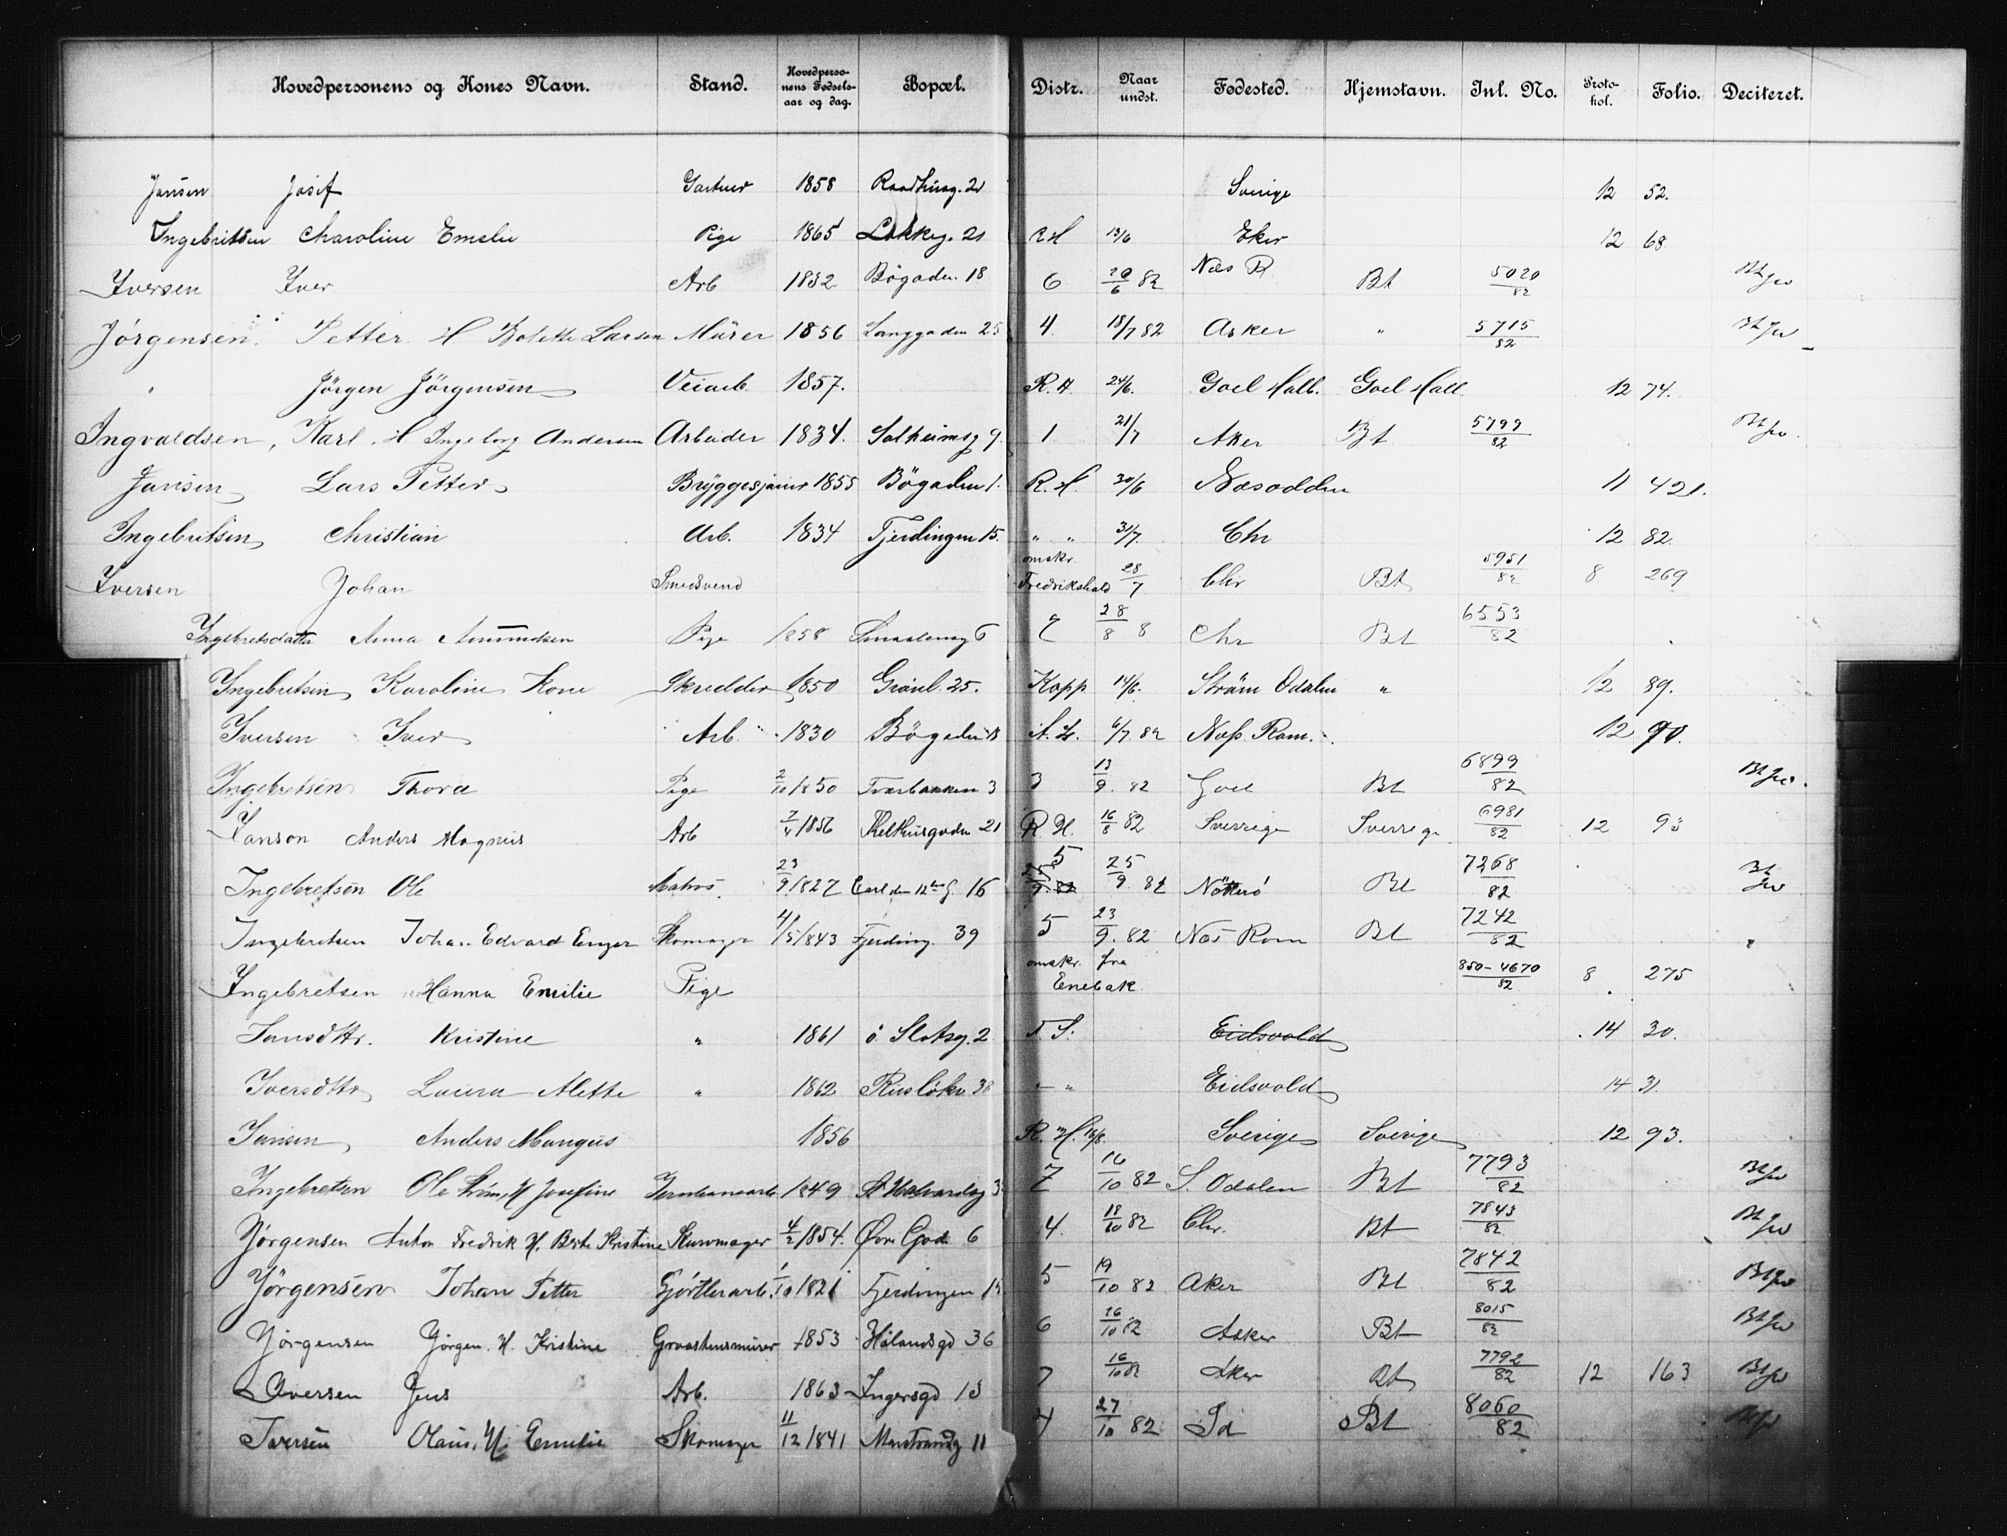 Hovedpersonens og Kones Navn. Stand. Hovedpersonens Fødselsaar og dag. Bopæl. Distr. Naar undst. Fødested. Hjemstavn. Inl. No. Protokol. Folio. Deciteret.
Jansen Josef Gartner 1858 Raadhusg. 20 Sverige 12 52.
Ingebritsen Karoline Emelie Pige 1865 Løkkeg. 21 R H 13/6 Eker 12 68
Iversen Iver Arb 1832 Bøgaden 18 6 20/6 82 Næs R Bt 5020/82
Jørgensen Petter H Bolette Larsen Mürer 1856 Langgaden 25 4. 18/7 82 Asker " 5715/82
" Jörgen Jörgensen Veiarb. 1857. R. H. 24/6. Goel Hall. Goel Hall. 12 74.
Ingvaldsen, Karl. H Ingeborg Andersen Arbeider 1834. Solheimsg 9. 1 21/7 Aker Bt 5799/82
Jansen Lars Petter Bryggesjauer 1855 Bögaden 1. R. H. 30/6 Næsodden 11 421.
Ingebritsen Christian Arb. 1834 Fjerdingen 15. " " 31/7. Chr 12 82.
Iversen Johan Smedsvend omskr. Fredrikshald 28/7 Chr Bt 5951/82 8 269
Ingebretsdatter Anna Amundsen Pige 1858 Smaaleneng 6 7 28/8 8 Chr Bt 6553/82
Ingebretsen Karoline Kone Skredder 1850 Grönl. 25. Kopp 14/6. Ström Odalen " 12 89.
Iversen Iver Arb. 1830 Bögaden 18 6/7. 82 Næs. Rom. 12 90.
Ingebretsen Thora Pige 2/10 1850 Tværbakken 3 3 13/9. 82 Goel Bt 6899/82
Janson Anders Magnus Arb 7/4 1856 Kelthusgaden 21 R. H. 16/8 82 Sverrige Sverrige 6981/82 12 93
Ingebretsen Ole Matros. 23/9 1827 Carl den 12tes G. 16 5 25/9. 82 25/9 82 Nøtterö Bt 7268/82
Ingebretsen Johan Edvard Enger Skomager 4/5 1843 Fjerding. 39 5 23/9. 82 Næs Rom Bt 7242/82 "
Ingebretsen Hanna Emilie Pige omskr. fra Enebak 850-4670/82 8 275
Jansdttr. Kristine " 1861 ö. Slotsg. 2 Eidsvold 14 30.
Iversdttr Laura Alette " 1862 Rusløkv. 38 " " Eidsvold 14 31.
Jansen Anders Mangus 1856 R. H. 16/8. Sverige Sverige 12 93.
Ingebretsen Ole Ström, H Josefine Jernbanearb 1849 St Halvardsg 3 7 16/10 82 S. Odalen Bt 7793/82
Jørgensen Anton Fredrik H. Berte Kristine Kurvmager 4/2 1854. Øvre Gad 6 4. 18/10 82 Chr. Bt 7843/82
Jørgensen Johan Petter Gjørtlerarb. 1/10 1821 Fjerdingen 5 19/10 82 Aker Bt 7842/82
Jørgensen Jørgen. H. Kristine Graastensmürer 1853 Hølandsgd 36 6 26/10 82 Asker Bt 8015/82
Iversen Jens Arb. 1863 Ingersgd 13 7 16/10 82 Aker Bt 7792/82 12 163
Iversen Olaus. H. Emilie Skomager 11/12 1841 Marstrandg 11 4 27/10 82 Id Bt 8060/82